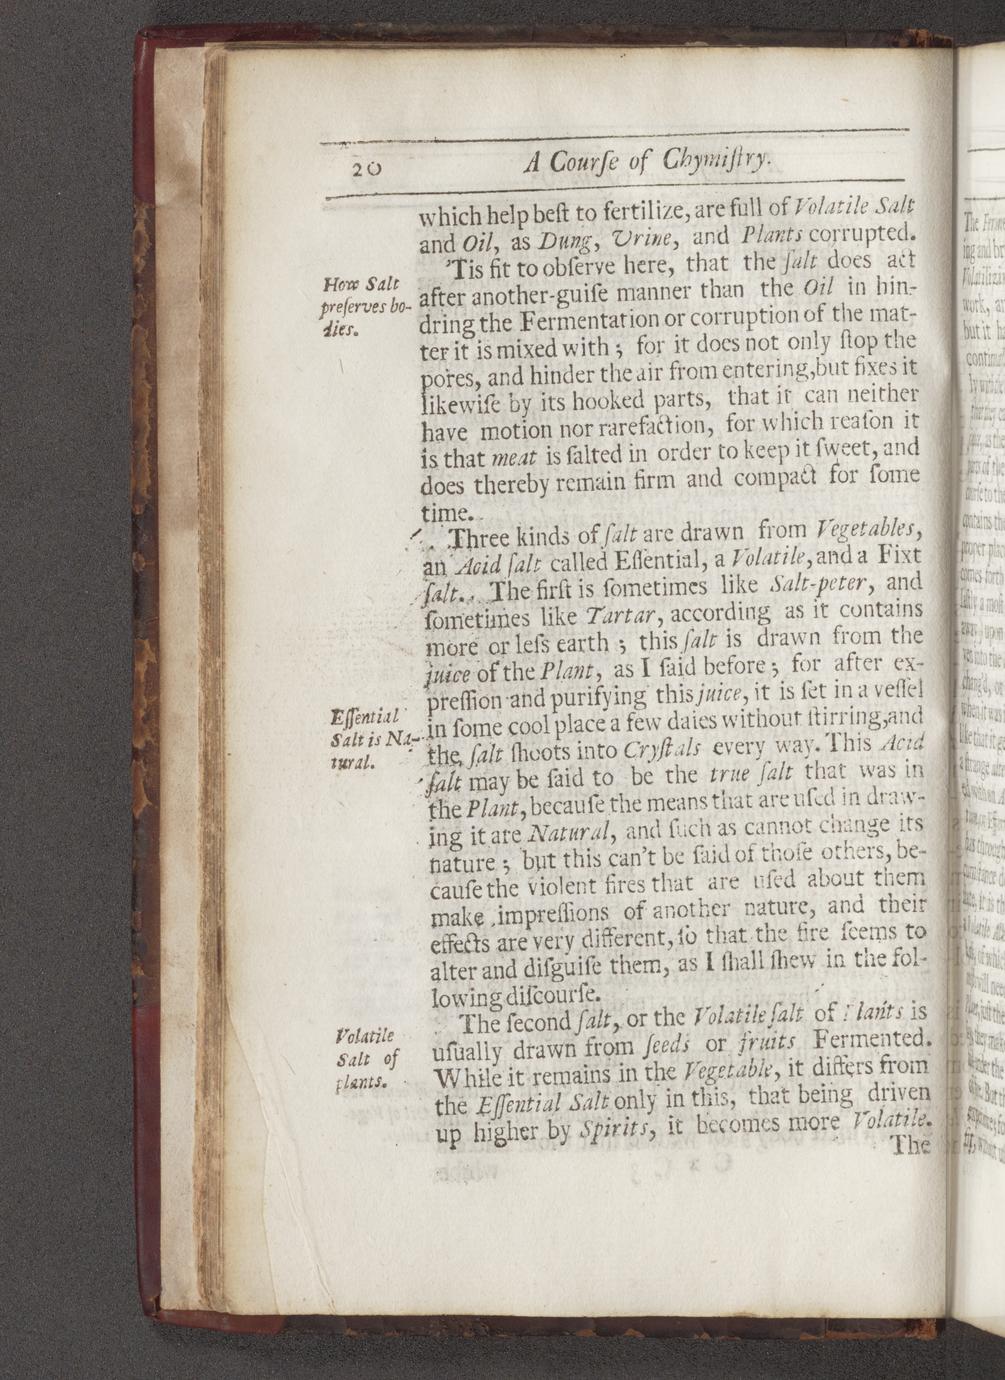 20
A Courſe of Chymiſtry.
which help beſt to fertilize, are full of Volatile Salt
and Oil, as Dung, Urine, and Plants corrupted.
'Tis fit to obſerve here, that the ſalt does act
How Salt
preſerves bo-
dies.
after another-guiſe manner than the Oil in hin-
dring the Fermentation or corruption of the mat-
ter it is mixed with; for it does not only ſtop the
pores, and hinder the air from entering, but fixes it
likewiſe by its hooked parts, that it can neither
have motion nor rarefaction, for which reaſon it
is that meat is ſalted in order to keep it ſweet, and
does thereby remain firm and compact for ſome
time.
Three kinds of ſalt are drawn from Vegetables,
an Acid ſalt called Eſſential, a Volatile, and a Fixt
ſalt. The firſt is ſometimes like Salt-peter, and
ſometimes like Tartar, according as it contains
more or leſs earth; this ſalt is drawn from the
juice of the Plant, as I ſaid before; for after ex-
preſſion and purifying this juice, it is ſet in a veſſel
Eſſential
Salt is Na-
tural.
in ſome cool place a few daies without ſtirring, and
the ſalt ſhoots into Cryſtals every way. This Acid
ſalt may be ſaid to be the true ſalt that was in
the Plant, becauſe the means that are uſed in draw-
ing it are Natural, and ſuch as cannot change its
nature; but this can't be ſaid of thoſe others, be-
cauſe the violent fires that are uſed about them
make impreſſions of another nature, and their
effects are very different, ſo that the fire ſeems to
alter and diſguiſe them, as I ſhall ſhew in the fol-
lowing diſcourſe.
The ſecond ſalt, or the Volatile ſalt of Plants is
Volatile
Salt of
plants.
uſually drawn from ſeeds or fruits Fermented.
While it remains in the Vegetable, it differs from
the Eſſential Salt only in this, that being driven
up higher by Spirits, it becomes more Volatile.
The